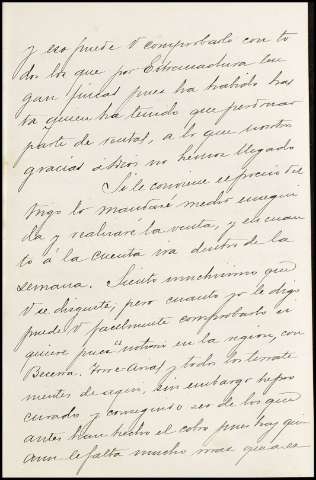 y eso puede V comprobarlo con to
dos los que por Extremadura ten
gan fincas pues ha habido has
ta quien ha tenido que perdonar
parte de rentas, a lo que nosotros
gracias á Dios no hemos llegado
Si le conviene el precio del
trigo lo mandaré medir ensegui
da y realizaré la venta, y en cuan
to á la cuenta irá dentro de la
semana. Siento muchisimo que
V se disguste, pero cuanto yo le digo
puede V facilmente comprobarlo si
quiere pues es notorio en la region, con
Becerra, Torre-Arias y todos los terrate
nientes de aqui, sin embargo he pro
curado y conseguido ser de los que
antes han hecho el cobro pues hay qui
aun le falta mucho mas que a